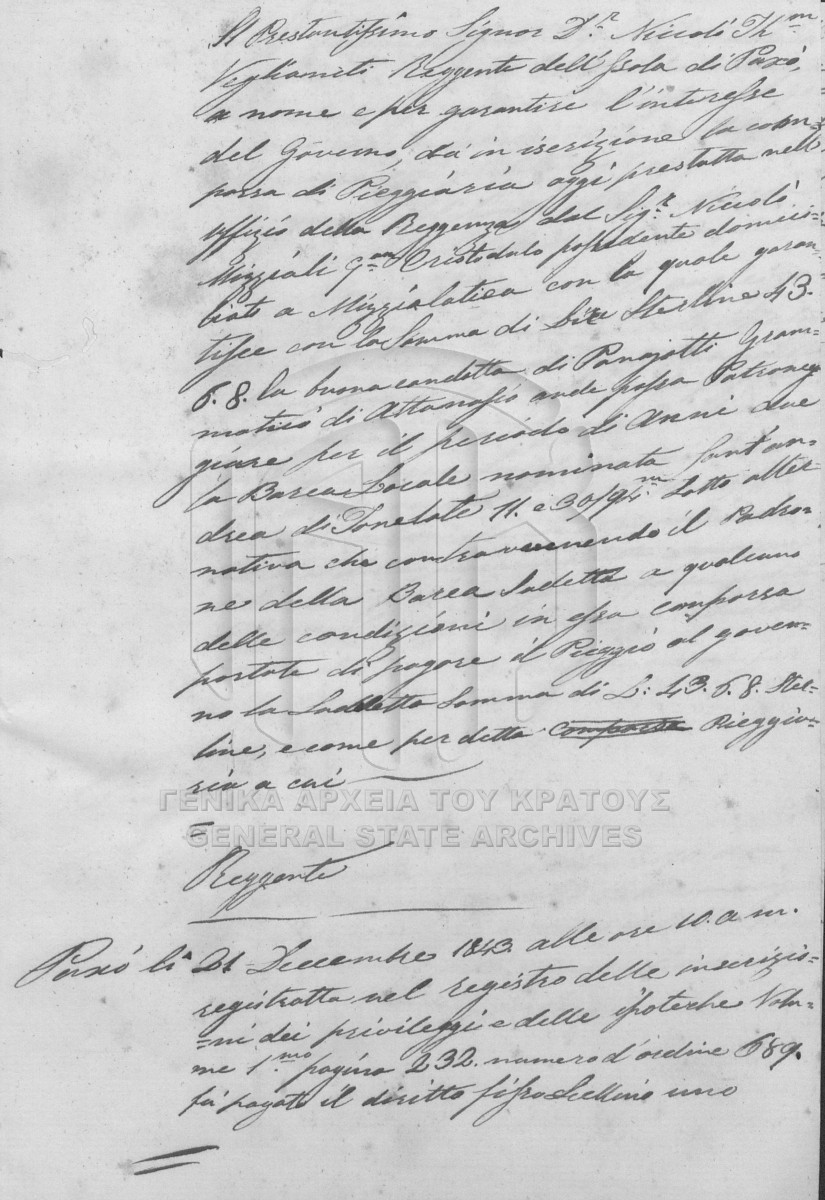 Il Prestantissimo Signor D.r Niccoló Th.m
Veglianiti Reggente dell'Isola di Paxó,
a nome e per garantire l'interesse
del Governo, dà in iscrizione la com=
parsa di Pieggiária oggi prestatta nell
Uffizió della Reggenza dal Sig.r Niccoló
Mizziáli q.m Cristodulo possidente domici=
liato a Mizzialatica con la quale garan=
tisce con la Somma di Lire Sterline 43.
6. 8. la buona condotta di Panajotti Gram=
maticó di Attanasio onde possa Patroneg
giare per il período di Anni due
la Barca Locale nominata Sant'an=
drea di Tonelate 11. e 30/94.mi Sotto alter=
nativa che contravenendo il Padro=
ne della Barca Sudetta a qualcuna
delle condizioni in essa comparsa
portate di pagare il Pieggió al gover=
no la Suddetta Somma di L: 43. 6. 8. Ster=
line, e come per detta comparsa Pieggia=
ria a cui
=
Reggente
Paxó li 21 Decembre 1843 alle ore 10. a m.
registratta nel registro delle inscrizio=
=ni dei privileggi e delle ipoteche Volu=
me 1.mo pagina 232. numero d'ordine 689.
fù pagato il diritto fisso Scellino uno
ΓΕΝΙΚΑ ΑΡΧΕΙΑ ΤΟΥ ΚΡΑΤΟΥΣ
GENERAL STATE ARCHIVES